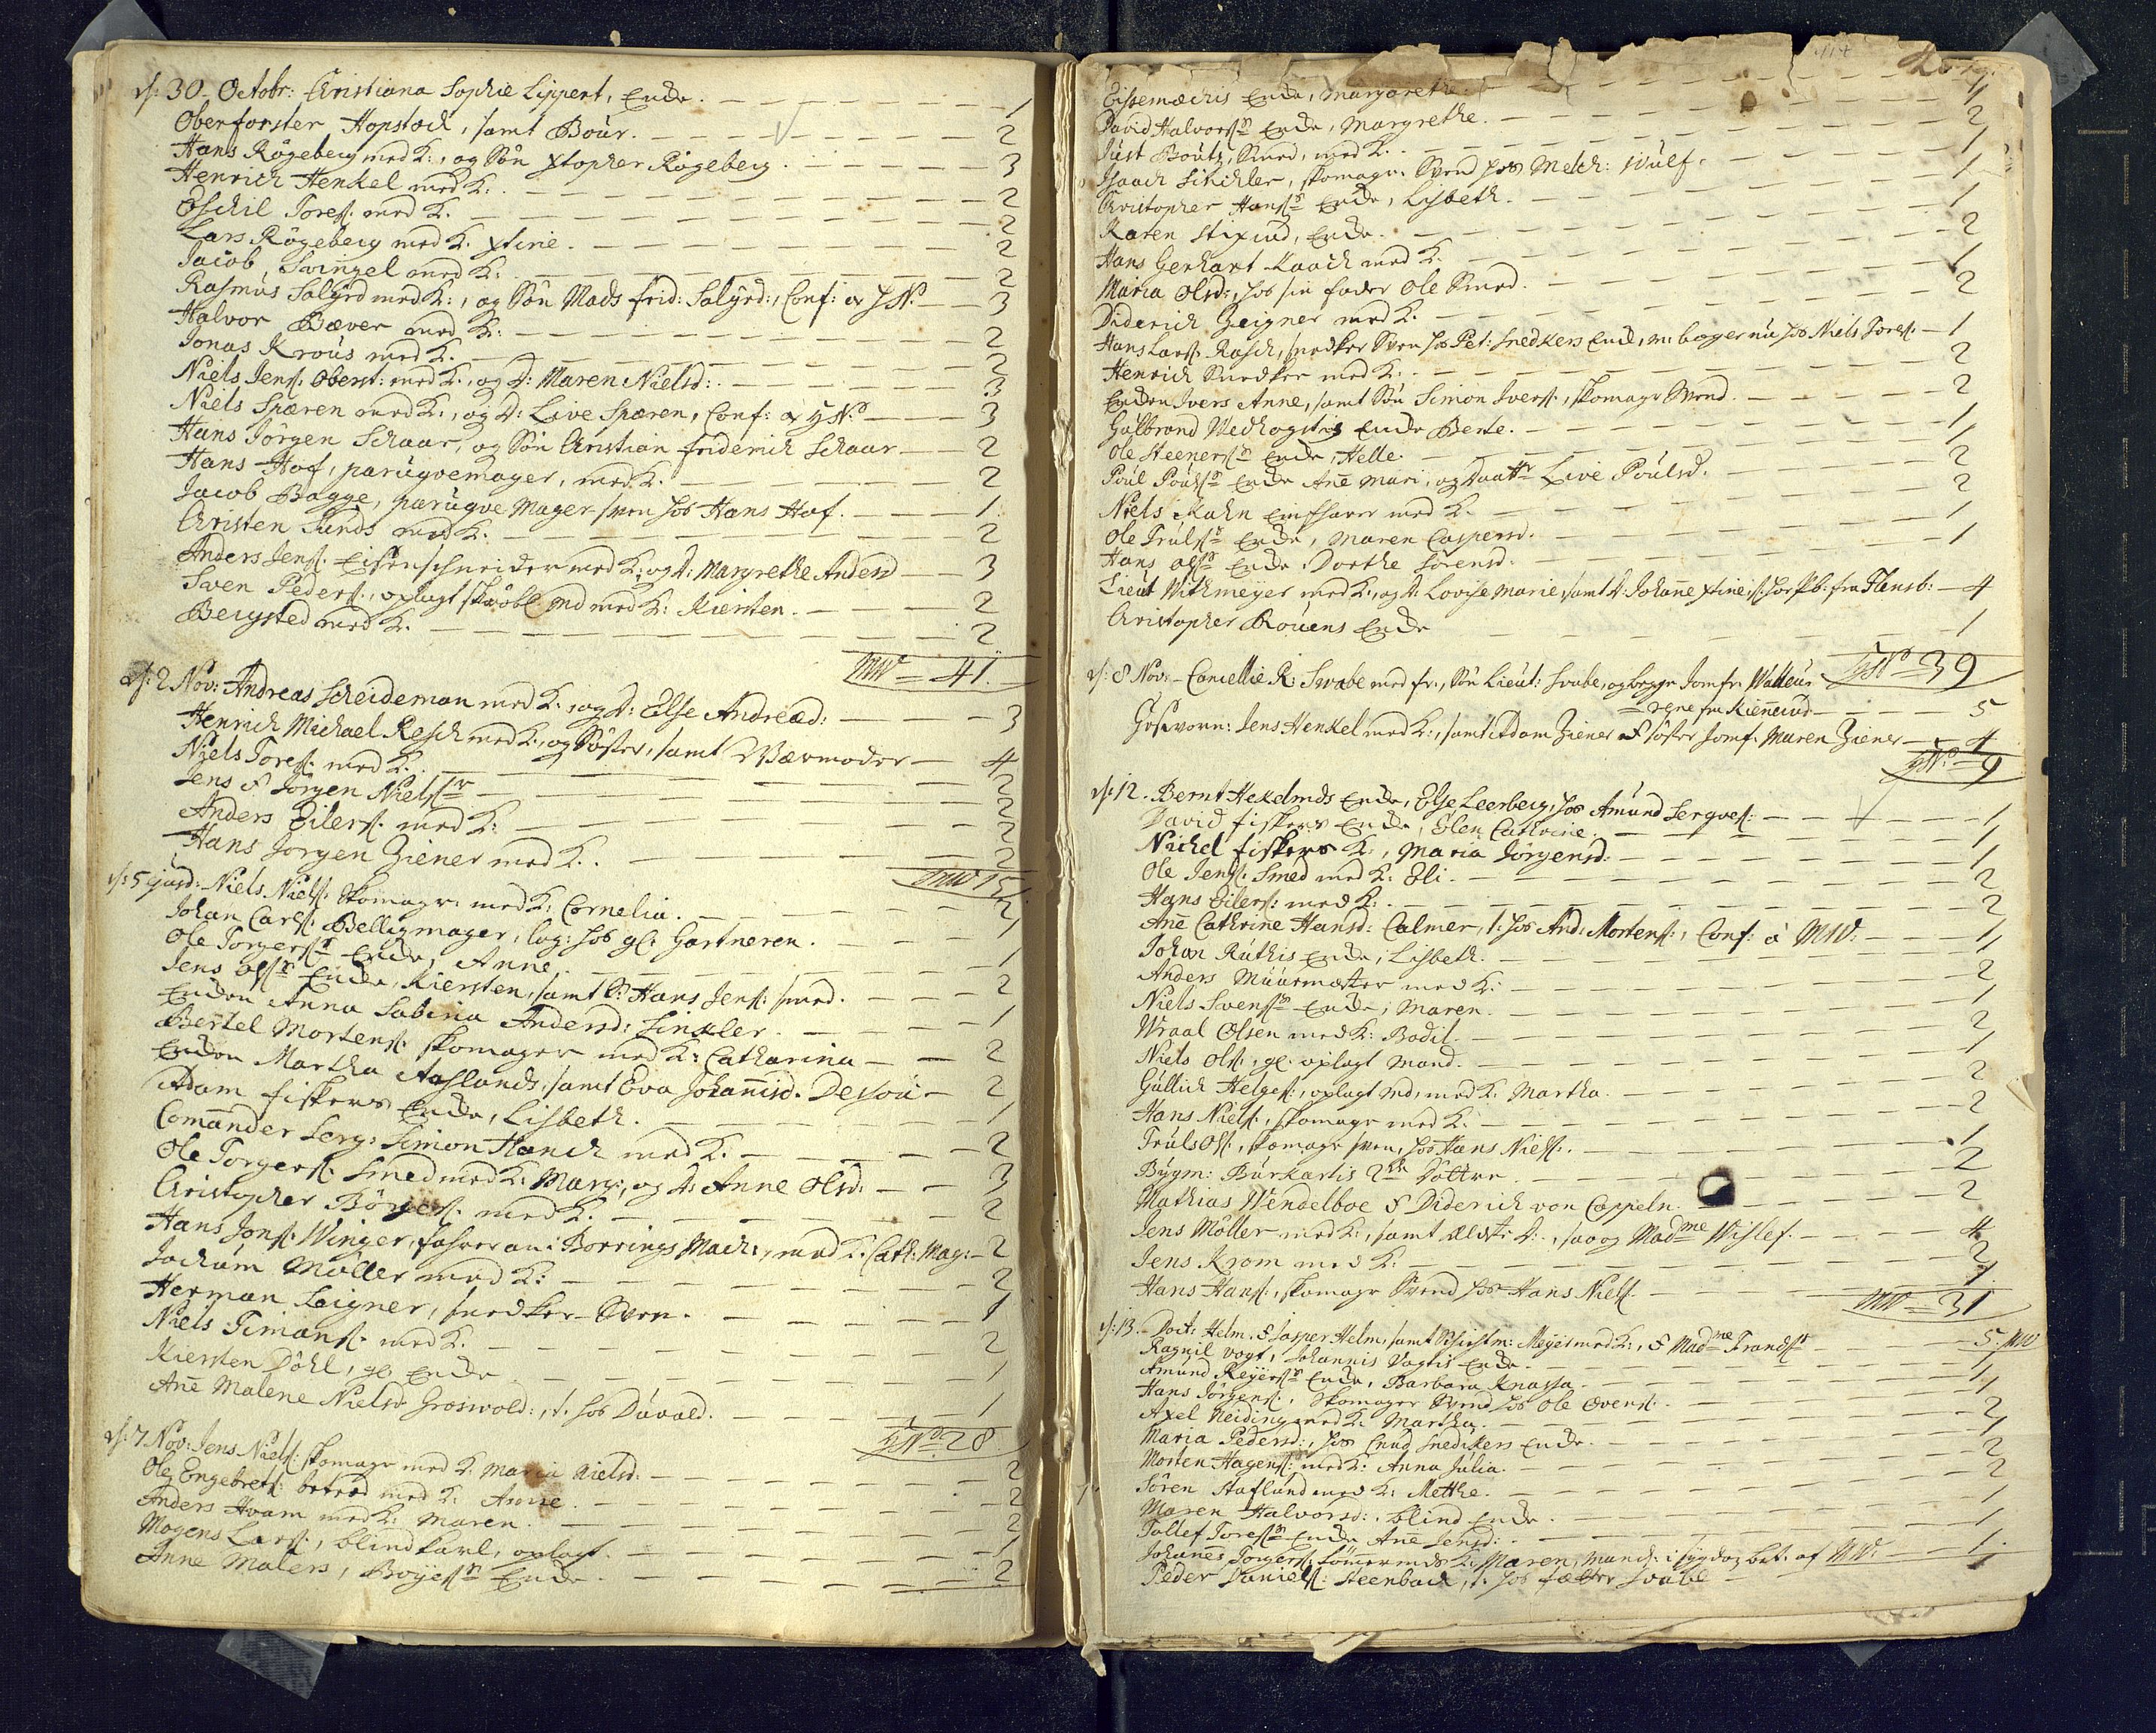 d: 30. Octobr: Christiana Sophie Lippert, Encke. — 1
Oberforster Hopstock, samt Bour. — 2
Hans Rögeberg med K:, og Sön Xstopher Rögeberg. — 3
Henrich Henkel med K. — 2
Eschil Tores. med K. — 2
Lars Rögeberg med K. Xtine. — 2
Jacob Svingel med K: — 2
Rasmus Salgrd med K:, og Sön Mads Frid: Salgrd:, Conf: — 3
Halvor Bæver med K: — 2
Jonas Krous med K. — 2
Niels Jens. Oberst: med K:, og D: Maren Nielsd: — 3
Niels Spæren med K:, og D: Live Spæren, Conf: — 3
Hans Jörgen Schaar, og Sön Christian Friderich Schaar — 2
Hans Hof, parugvemager, med K. — 2
Jacob Bagge, parugve Mager sven hos Hans Hof. — 1
Christen Sunds med K. — 2
Anders Jens. Eisenschneider med K: og D: Margrethe Andersd — 3
Sven Peders., oplagt med K: Kiersten. — 2
Bergsted med K. — 2
MW = 41.
d: 2 Nov: Andreas Scheideman med K:, og D: Else Andread: — 3
Henrich Michael Resch med K:, og Söster, samt Værmoder — 4
Niels Tores. med K. — 2
Jens & Jörgen Nielssr — 2
Anders Eilers. med K: — 2
Hans Jörgen Ziener med K. — 2
MW 15
d: 5 ejusd: Niels Niels. Skomagr: med K: Cornelia. — 2
Johan Carls. Belligmager, log: hos gl: Gartneren. — 1
Ole Torgerssn Encke, Anne. — 1
Jens Olssn Encke, Kiersten, samt S: Hans Jens: smed. — 2
Encken Anna Sabina Andersd: Sinkler. — 1
Bertel Mortens. Skomager med K: Catharina — 2
Encken Martha Aaslands, samt Eva Johannisd. Dessou — 2
Adam Fiskers Encke, Lisbeth. — 1
Comander Serg: Simon Hanch med K. — 2
Ole Torgers. Smed med K: Marg:, og D: Anne Olsd: — 3
Christopher Börges. med K. — 2
Hans Jons. Winger, Borrings Mach:, med K. Cath: Mag: — 2
Jochum Möller med K: — 2
Herman Seigner, snedker-Sven. — 1
Niels Timans. med K. — 2
Kiersten Döhl, gl: Encke — 1
Ane Malene Nielsd Groswold:, t. hos Duvald. — 1
28
d: 7 Nov: Jens Niels: skomagr med K. Maria Nielsd: — 2
Ole Engebrets: med K: Anne. — 2
Anders Hvam med K: Maren. — 2
Mogens Lars., blind karl, oplagt. — 1
Anne Malers, Boyessn Encke. — 2
Encke, Margarethe. — 1
David Halvorssn Encke, Margrethe. — 1
Just Boutz, Smed, med K. — 2
Isaach Sinckler, skomagr. Svend hos Melch: Wulf. — 1
Christopher Hanssn Encke, Lisbeth. — 1
Karen Stixrud, Encke. — 1
Hans Gerhart Kaach med K — 2
Maria Olsd:, hos sin fader Ole Smed. — 1
Diderich Zeigner med K. — 2
Hans Lars. Rasch, snedker Sven hos Pet: Snedkers Encke, nu hos Niels Tores. — 1
Henrich Snedker med K: — 2
Encken Ivers Anne, samt Sön Simon Ivers., skomagr Svend. — 2
Gulbrand Encke Berte. — 1
Ole Steenerssn Encke, Helle. — 1
Poul Poulssn Encke Ane Mari, og Daattr Live Poulsd. — 2
Niels Kahn med K. — 2
Ole Trulssn Encke, Maren Caspersd. — 1
Hans Olssn Encke Dorthe Sörensd. — 1
Lieut Withmeyer med K:, og D: Lovise Marie, samt D: Johane Xtine, fra Flensb: — 4
Christopher Rouens Encke — 1
39
d: 8 Nov: Cancellie R: Swabe med fr:, Sön Lieut: Svabe, og begge Jomfr. Watteur
fra Kienerud — 5
Jens Henkel med K:, samt Adam Ziener & söster Jomf: Maren Ziener — 4
9
d: 12. Bernt Hekelmds Encke, Else Leerberg, hos Amund Sergves: — 1
David Fiskers Encke, Elen Cathrine. — 1
Michel Fiskers K:, Maria Jörgensd. — 1
Ole Jens. Smed med K: Eli. — 2
Hans Eilers: med K: — 2
Ane Cathrine Hansd: Calmer, t: hos And: Mortens:, Conf: à MW: — 1
Johan Ruthis Encke, Lisbeth. — 1
Anders Muurmæster med K: — 2
Niels Svenssn Encke, Maren. — 1
Wraal Olsen med K: Bodil. — 2
Niels Ols:, gl. oplagt Mand. — 1
Gullich Helges:, oplagt Md, med K. Martha. — 2
Hans Niels:, skomagr med K: — 2
Truls Ols:, skomagr sven, hos Hans Niels:. — 1
Bygm: Burkartis 2de Döttre. — 2
Mathias Wendelboe & Diderich von Cappeln. — 2
Jens Möller med K:, samt ældste D:, saa og Madme Wislef. — 4
Jens Krom med K: — 2
Hans Hans:, skomagr Svend hos Hans Niels. — 1
MW = 31
d: 13. Doct: Helm. & Jasper Helm, samt Meyer med K:, & Madme Frandssn — 5. MW
Ragnil Vogt, Johannis Vogtis Encke. — 1
Amund Reyerssn Encke, Barbara Knassa. — 1
Hans Jörgens., Skomager Svend hos Ole Overs. — 1
Axel Neiding med K. Martha. — 2
Maria Pedersd:, hos Cnud Snedkers Encke. — 1
Morten Hagens: med K: Anna Julia. — 2
Sören Staflund med K: Metthe. — 2
Maren Halvorsd:, blind Encke. — 1
Tollef Toressn Encke Ane Jensd: — 1
Johannes Torgers: K: Maren, bet: af MW: — 1.
Peder Daniels: Steenback, t: hos fætter Svabe —